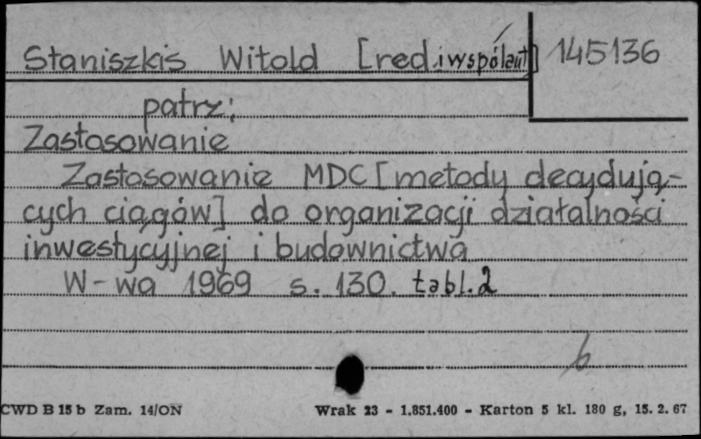 Staniszkis Witold [red.i współaut] 145136
patrz:
Zastosowanie
Zastosowanie MDC [metody decydują-
cych ciągów] do organizacji działalności
inwestycyjnej i budownictwa
W-wa 1969 s. 130. tabl. 2
b
CWD B 15 b Zam. 14/ON Wrak 23 - 1.851.400 - Karton 5 kl. 180 g, 15. 2. 67